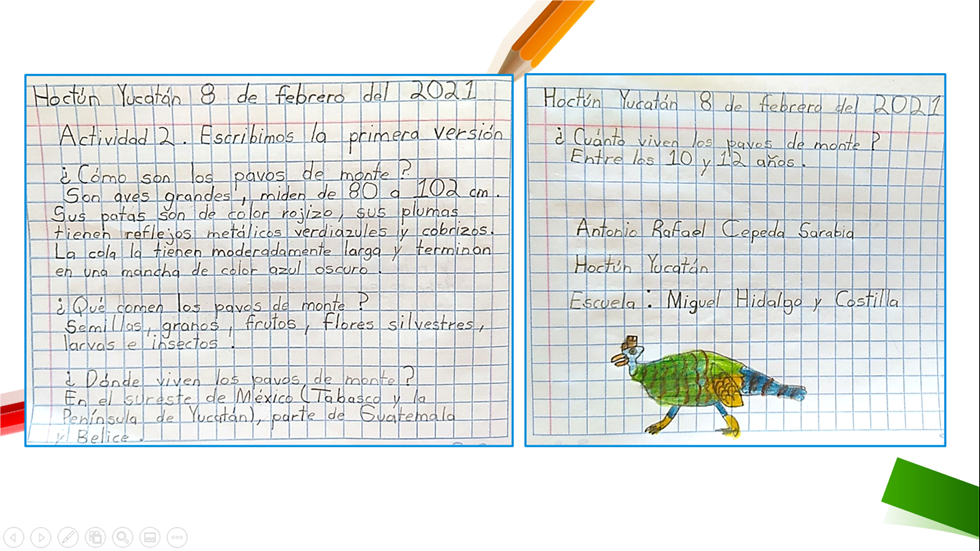 Hoctún Yucatán 8 de febrero del 2021
Actividad 2. Escribimos la primera versión
¿Cómo son los pavos de monte?
Son aves grandes, miden de 80 a 102 cm.
Sus patas son de color rojizo, sus plumas
tienen reflejos metálicos verdiazules y cobrizos.
La cola la tienen moderadamente larga y terminan
en una mancha de color azul oscuro.
¿Qué comen los pavos de monte?
Semillas, granos, frutos, flores silvestres,
larvas e insectos.
¿Dónde viven los pavos de monte?
En el sureste de México (Tabasco y la
Península de Yucatán), parte de Guatemala
y Belice.
Hoctún Yucatán 8 de febrero del 2021
¿Cuánto viven los pavos de monte?
Entre los 10 y 12 años.
Antonio Rafael Cepeda Sarabia
Hoctún Yucatán
Escuela: Miguel Hidalgo y Costilla